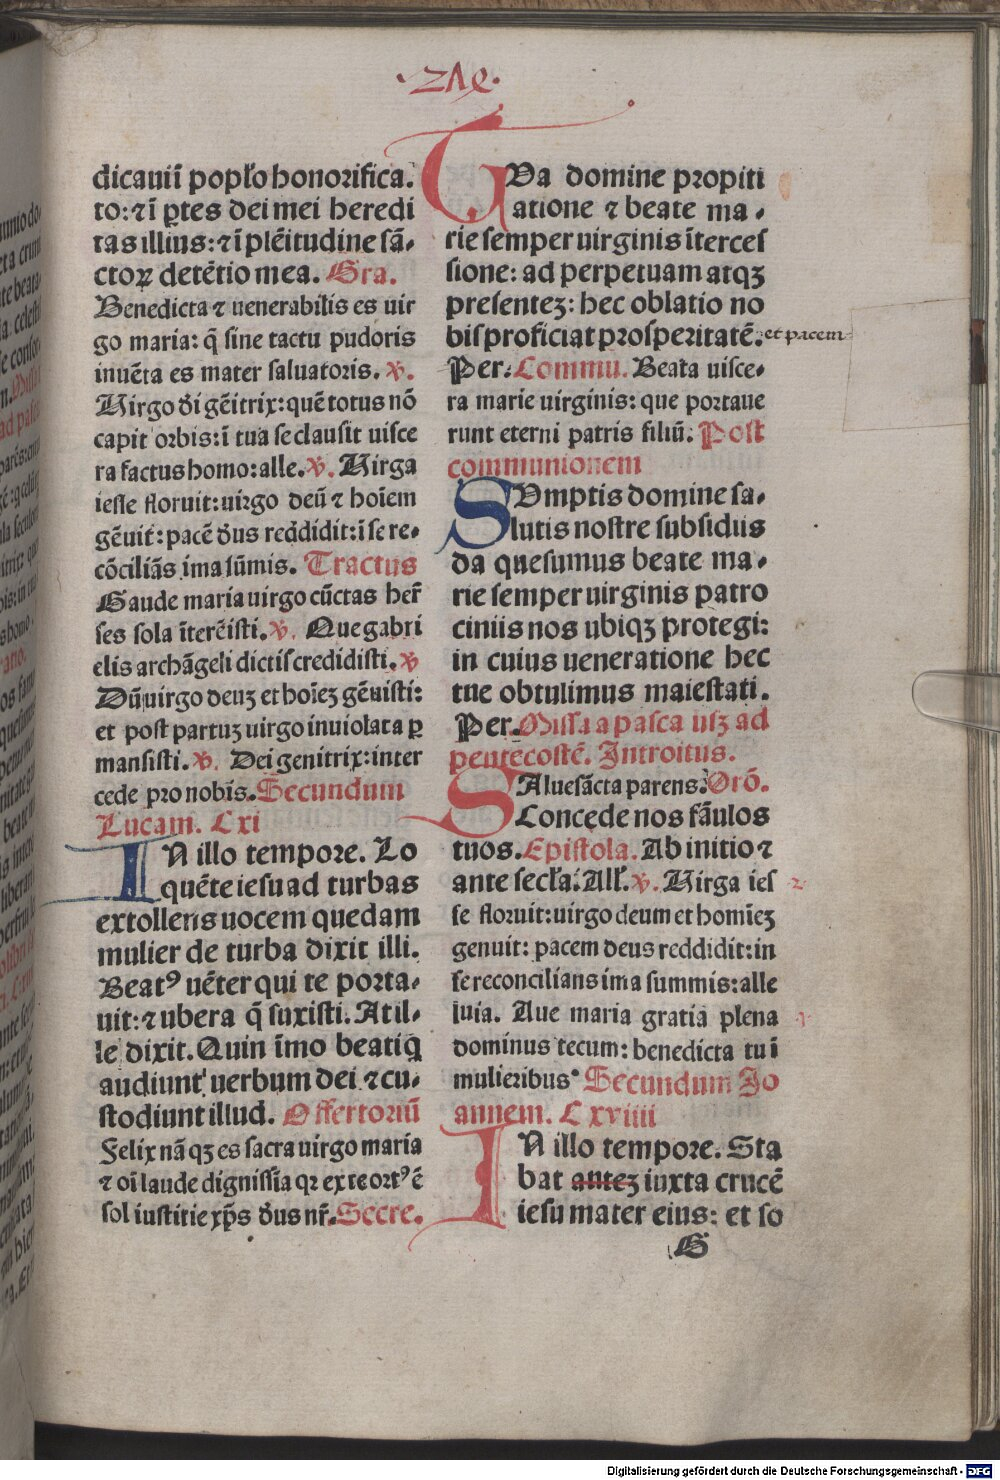 ·zʌe·
dicauiī popl̄o honorifica.
to: ⁊ ī ꝑtes dei mei heredi
tas illius: ⁊ ī plēitudine sā-
ctoꝝ detētio mea. Gra.
Benedicta ⁊ uenerabilis es uir
go maria: q̄ sine tactu pudoris
inuēta es mater saluatoris. v.
Virgo di gēitrix: quē totus nō
capit orbis: ī tua se clausit uisce
ra factus homo: alle. v. Virga
iesse floruit: uirgo deū ⁊ hoīem
gēuit: pacē dūs reddidit: ī se re-
cōciliās ima sūmis. Tractus
Gaude maria uirgo cūctas her̄
ses sola īterēisti. v. Que gabri
elis archāgeli dictis credidisti. v
Dū uirgo deuꝫ et hoīeꝫ gēuisti:
et post partuꝫ uirgo inuiolata ꝑ
mansisti. v. Dei genitrix: inter
cede pro nobis. Secundum
Lucam. Cxi
IN illo tempore. Lo
quēte iesu ad turbas
extollens uocem quedam
mulier de turba dixit illi.
Beatꝰ uēter qui te porta-
uit: ⁊ ubera q̄ suxisti. At il-
le dixit. Quin īmo beati q̄
audiunt uerbum dei ⁊ cu-
stodiunt illud. Offertoriū
Felix nā qꝫ es sacra uirgo maria
⁊ oī laude dignissīa qꝛ ex te ortꝰ ē
sol iustitie xp̄s dūs nr̄. Secre.
TVa domine propiti
atione ⁊ beate ma-
rie semper uirginis īterces
sione: ad perpetuam atqꝫ
presenteꝫ: hec oblatio no
bis proficiat prosperitatē. et pacem
Per. Commu. Beata uisce-
ra marie uirginis: que portaue
runt eterni patris filiū. Post
communionem
SVmptis domine sa-
lutis nostre subsidiis
da quesumus beate ma-
rie semper uirginis patro
ciniis nos ubiqꝫ protegi:
in cuius ueneratione hec
tue obtulimus maiestati.
Per. Missa a pasca usꝫ ad
pentecostē. Introitus.
SAlue sācta parens. Orō.
Concede nos fāulos
tuos. Epistola. Ab initio ⁊
ante secl̄a. All̄. v. Virga ies
se floruit: uirgo deum et homīeꝫ
genuit: pacem deus reddidit: in
se reconcilians ima summis: alle
luia. Aue maria gratia plena
dominus tecum: benedicta tu ī
mulieribus. Secundum Jo
annem. Cxviiii
IN illo tempore. Sta
bat auteꝫ iuxta crucē
iesu mater eius: et so
G
Digitalisierung gefördert durch die Deutsche Forschungsgemeinschaft - DFG